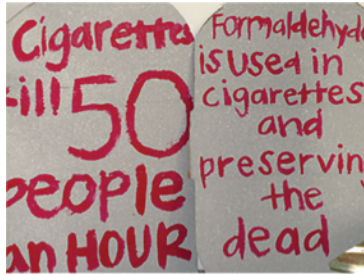 Cigarettes
kill 50
people
an HOUR
Formaldehyde
is used in
cigarettes
and
preserving
the
dead